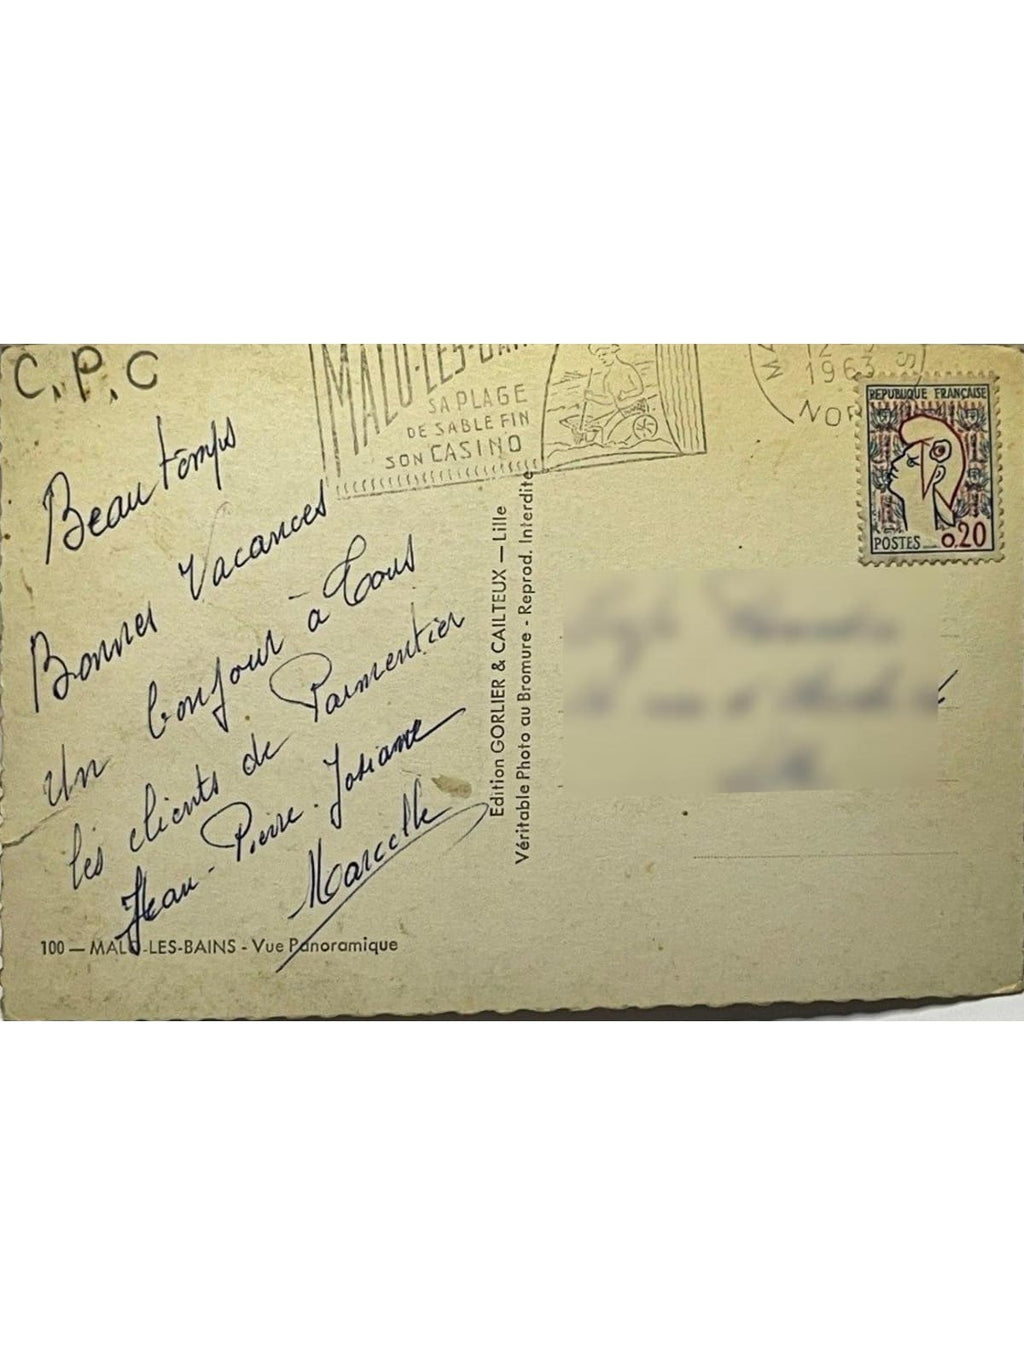 C.P.C
MALO-LES-BAINS
SA PLAGE
DE SABLE FIN
SON CASINO
1963
NOR
REPUBLIQUE FRANÇAISE
POSTES 0,20
Beau temps
Bonnes Vacances
Un bonjour à Tous
les clients de Parmentier
Jean-Pierre. Josiane
Marcelle
Edition GORLIER & CAILTEUX — Lille
Véritable Photo au Bromure - Reprod. Interdite
100 — MALO-LES-BAINS - Vue Panoramique